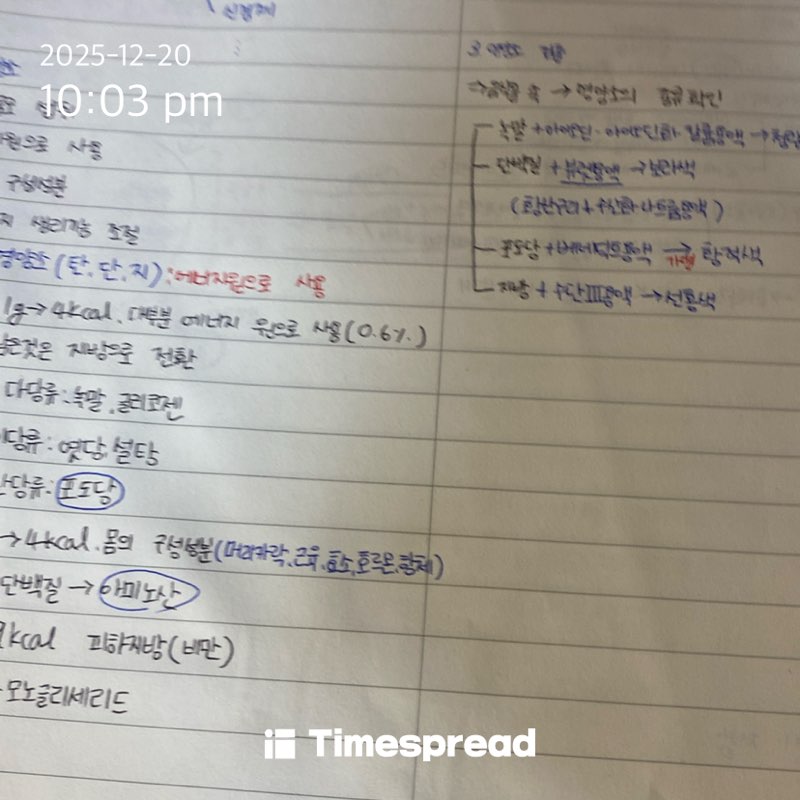 2025-12-20
10:03 pm
원으로 사용
구성성분
생리기능 조절
영양소 (탄, 단, 지) : 에너지원으로 사용
1g→4kcal. 대부분 에너지 원으로 사용(0.6%)
남은것은 지방으로 전환
다당류: 녹말, 글리코젠
이당류: 엿당, 설탕
단당류: 포도당
→4kcal. 몸의 구성성분(머리카락, 근육, 효소, 호르몬, 항체)
단백질 → 아미노산
9kcal 피하지방(비만)
모노글리세리드
3 영양소 검출
→ 음식물 속 → 영양소의 종류 확인
녹말 + 아이오딘-아이오딘화 칼륨용액 → 청람
단백질 + 뷰렛용액 → 보라색
(황산구리 + 수산화나트륨용액)
포도당 + 베네딕트용액 → 황적색
가열
지방 + 수단III용액 → 선홍색
Timespread